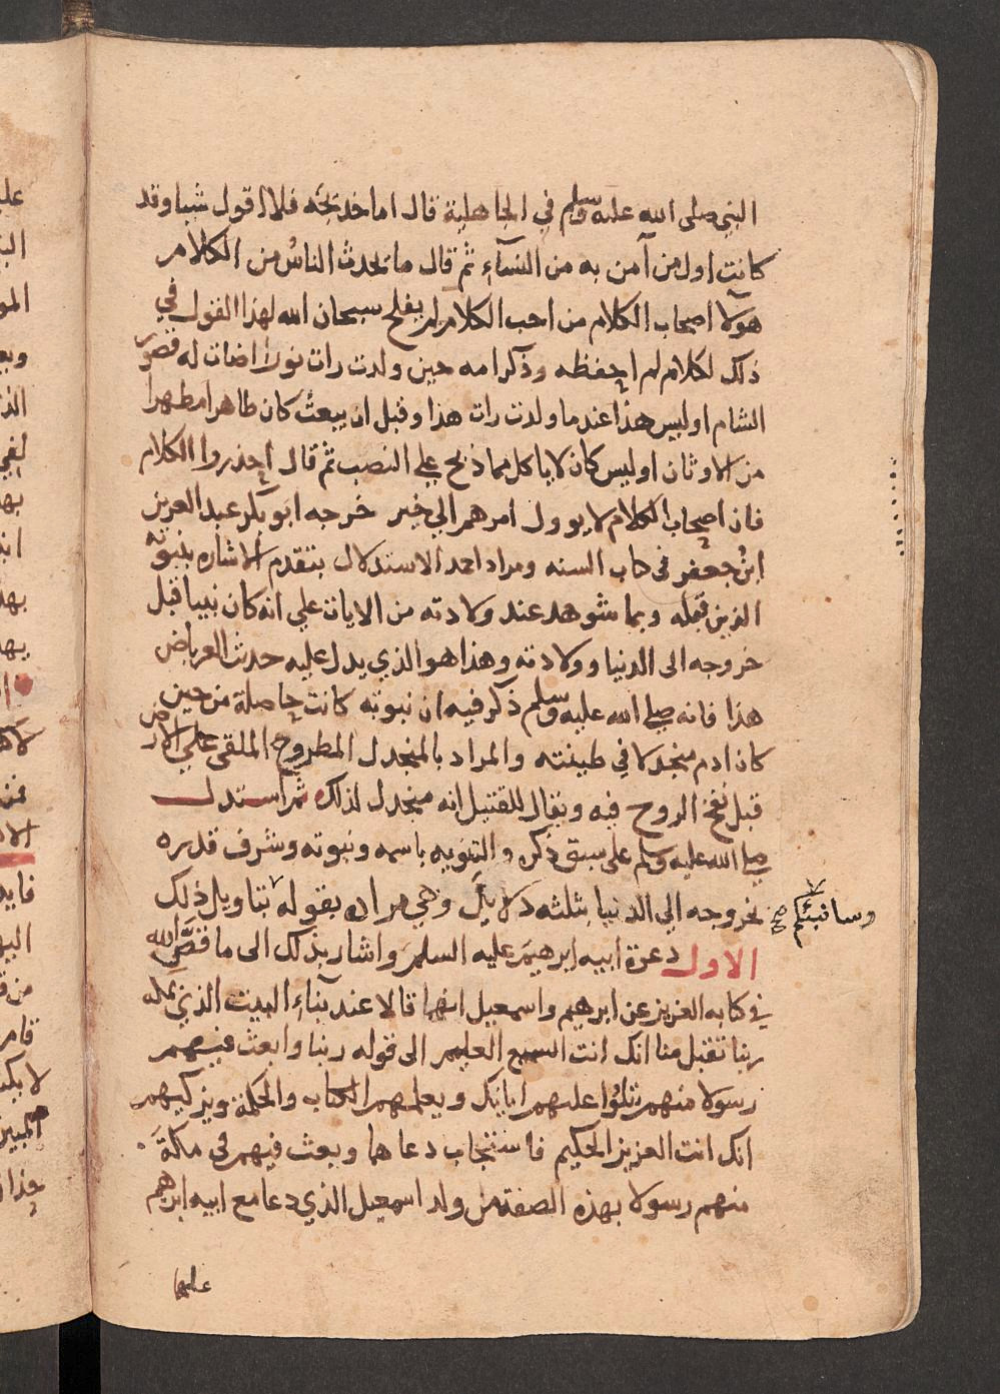 النبي صلى الله عليه وسلم في الجاهلية قال اما خديجه فلا اقول شيا وقد
كانت اول من آمن به من النسآء ثم قال ما يحدث الناس من الكلام
هولآ اصحاب الكلام من احب الكلام لم يفلح سبحان الله لهذا القول في
ذلك لكلام لم احفظه وذكر امه حين ولدت رات نورا اضات له قصور
الشام اوليس هذا عند ما ولدت رات هذا وقبل ان يبعث كان طاهرا مطهرا
من الاوثان اوليس كان لا ياكل مما ذبح علي النصب ثم قال احذروا الكلام
فان اصحاب الكلام لا يوول امرهم الي خير خرجه ابو بكر عبد العزيز
ابن جعفر في كاب السنه ومراد احمد الاستدلال بتقدم الاشاره بنبوته
الذين قبله وبما شوهد عند ولادته من الايات علي انه كان نبيا قبل
خروجه الى الدنيا وولادته وهذا هو الذي يدل عليه حدث العرباض
هذا فانه صلي الله عليه وسلم ذكر فيه ان نبوته كانت حاصلة من حين
كان ادم منجدلا في طينته والمراد بالمنجدل المطروح الملقى علي الارض
قبل نفخ الروح فيه ويقال للقتيل انه منجدل لذلك ثم استدل
صلي الله عليه وسلم على سبق ذكره والتنويه باسمه ونبوته وشرف قدره
لخروجه الي الدنيا بثلثه دلايل وهي مراده بقوله بتاويل ذلك
وسانبئكم صح
الاول دعوة ابيه ابرهيم عليه السلم واشار بذلك الى ما قص الله
في كابه العزيز عن ابرهيم واسمعيل انهما قالا عند بنآء البيت الذي بمكه
ربنا تقبل منا انك انت السميع العليم الى قوله ربنا وابعث فيهم
رسولا منهم يتلوا عليهم اياتك ويعلمهم الكتاب والحكمة ويزكيهم
انك انت العزيز الحكيم فاستجاب دعاهما وبعث فيهم في مكة
منهم رسولا بهذه الصفة من ولد اسمعيل الذي دعا مع ابيه ابرهيم
عليهما